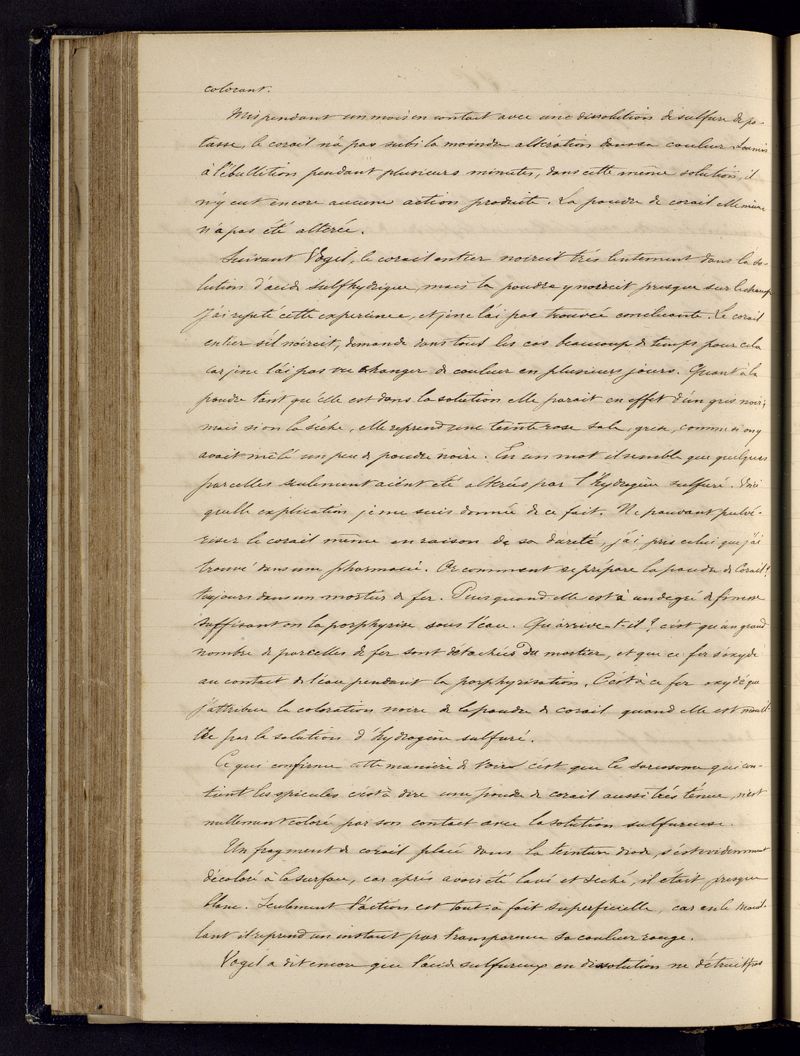 colorant.
Mis pendant un mois en contact avec une dissolution de sulfure de po-
tasse, le corail n'a pas subi la moindre altération dans sa couleur. Soumis
à l'ébullition pendant plusieurs minutes, dans cette même solution, il
n'y eut encore aucune action produite. La poudre de corail elle même
n'a pas été altérée.
Suivant Vogel, le corail entier noircit très lentement dans la so-
lution d'acide sulfhydrique, mais la poudre y noircit presque sur le champ
J'ai répété cette expérience, et je ne l'ai pas trouvée concluante. Le corail
entier s'il noircit, demande dans tous les cas beaucoup de temps pour cela
car je ne l'ai pas vu changer de couleur en plusieurs jours. Quant à la
poudre tant qu'elle est dans la solution elle paraît en effet d'un gris noir;
mais si on la sèche, elle reprend une teinte rose sale, grise, comme si on y
avait mêlé un peu de poudre noire. En un mot il semble que quelques
parcelles seulement aient été altérées par l'hydrogène sulfuré. Voici
quelle explication je me suis donnée de ce fait. Ne pouvant pulvé-
riser le corail même en raison de sa dureté, j'ai pris celui que j'ai
trouvé dans une pharmacie. Or comment se prépare la poudre de Corail?
toujours dans un mortier de fer. Puis quand elle est à un degré de finesse
suffisant on la porphyrise sous l'eau. Qu'arrive-t-il? c'est qu'un grand
nombre de parcelles de fer sont détachées du mortier, et que ce fer s'oxyde
au contact de l'eau pendant la porphyrisation. C'est à ce fer oxydé que
j'attribue la coloration noire de la poudre de corail quand elle est
par la solution d'hydrogène sulfuré.
Ce qui confirme cette manière de voir c'est que le sarcosome qui con-
tient les spicules c'est à dire une poudre de corail aussi très ténue, n'est
nullement coloré par son contact avec la solution sulfureuse.
Un fragment de corail placé dans la teinture d'iode, s'est évidemment
décoloré à la surface, car après avoir été lavé et séché, il était presque
blanc. Seulement l'action est tout à fait superficielle, car en le mouil-
lant il reprend un instant par transparence sa couleur rouge.
Vogel a dit encore que l'acide sulfureux en dissolution ne détruit pas